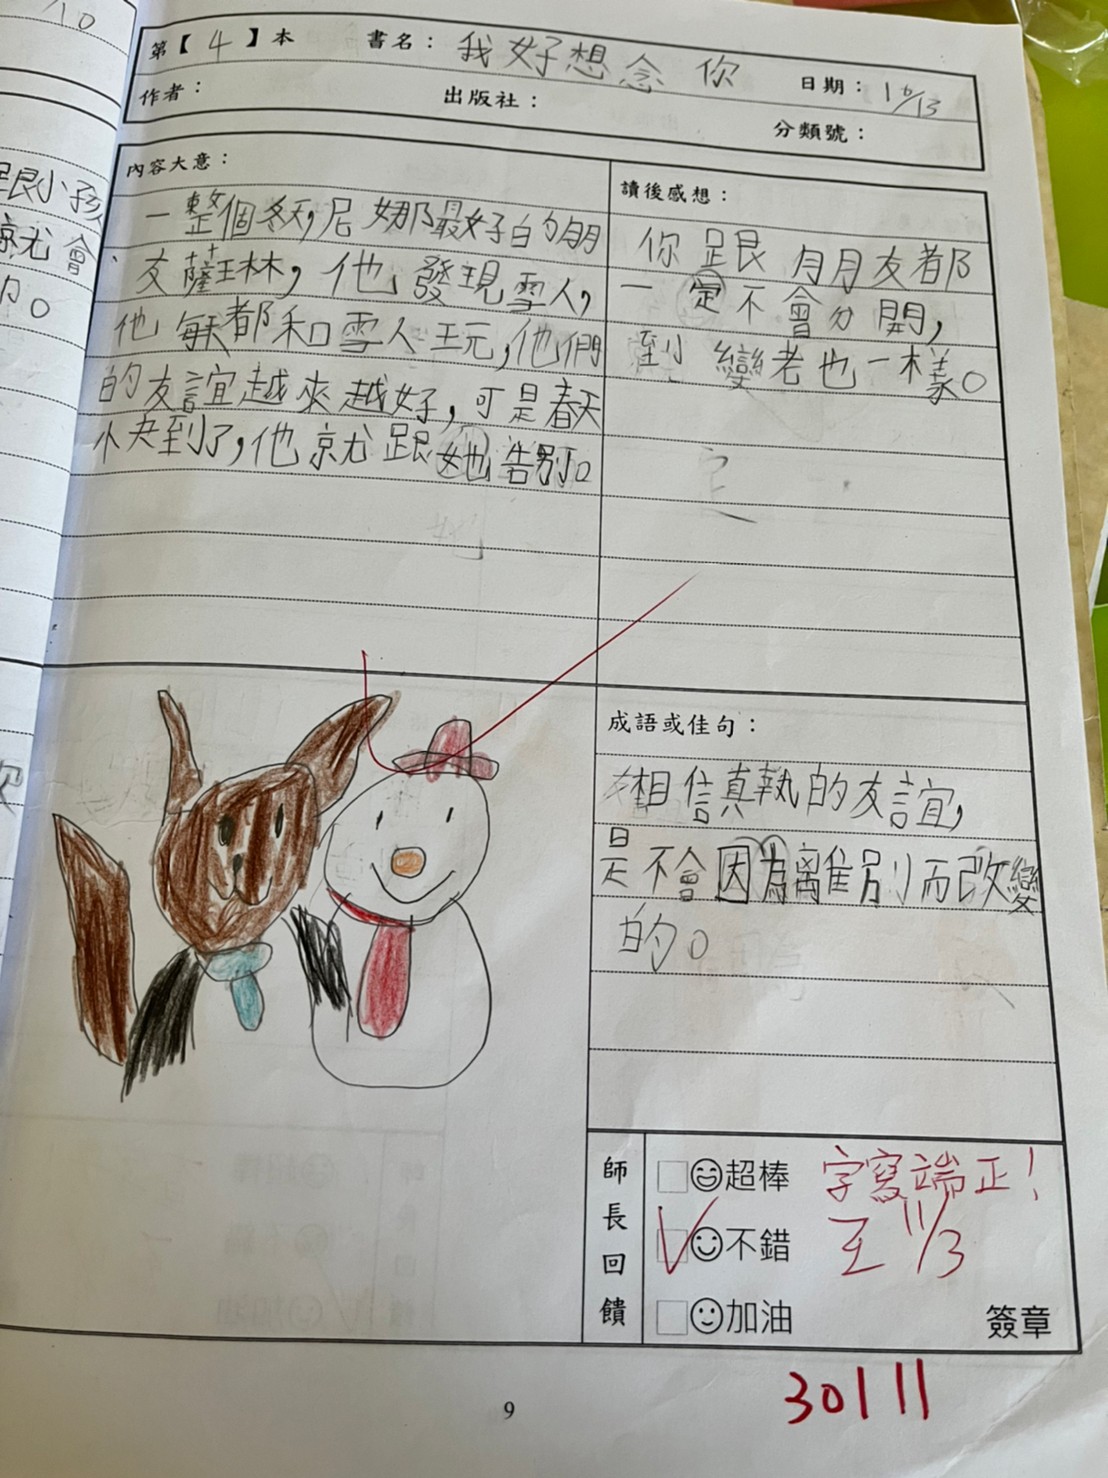 10
跟小孩
就會
的。
第【4】本 書名：我好想念你 日期：10/13
作者： 出版社： 分類號：
內容大意：
一整個冬天，尼娜最好的朋
友薩林，他發現雪人，
他每天都和雪人玩，他們
的友誼越來越好，可是春天
快到了，他就跟她告別。
讀後感想：
你跟朋友都
一定不會分開，
到變老也一樣。
成語或佳句：
相信真執的友誼，
是不會因為離別而改變
的。
師長回饋
超棒 字寫端正！
不錯 王 11/3
加油 簽章
9
30111